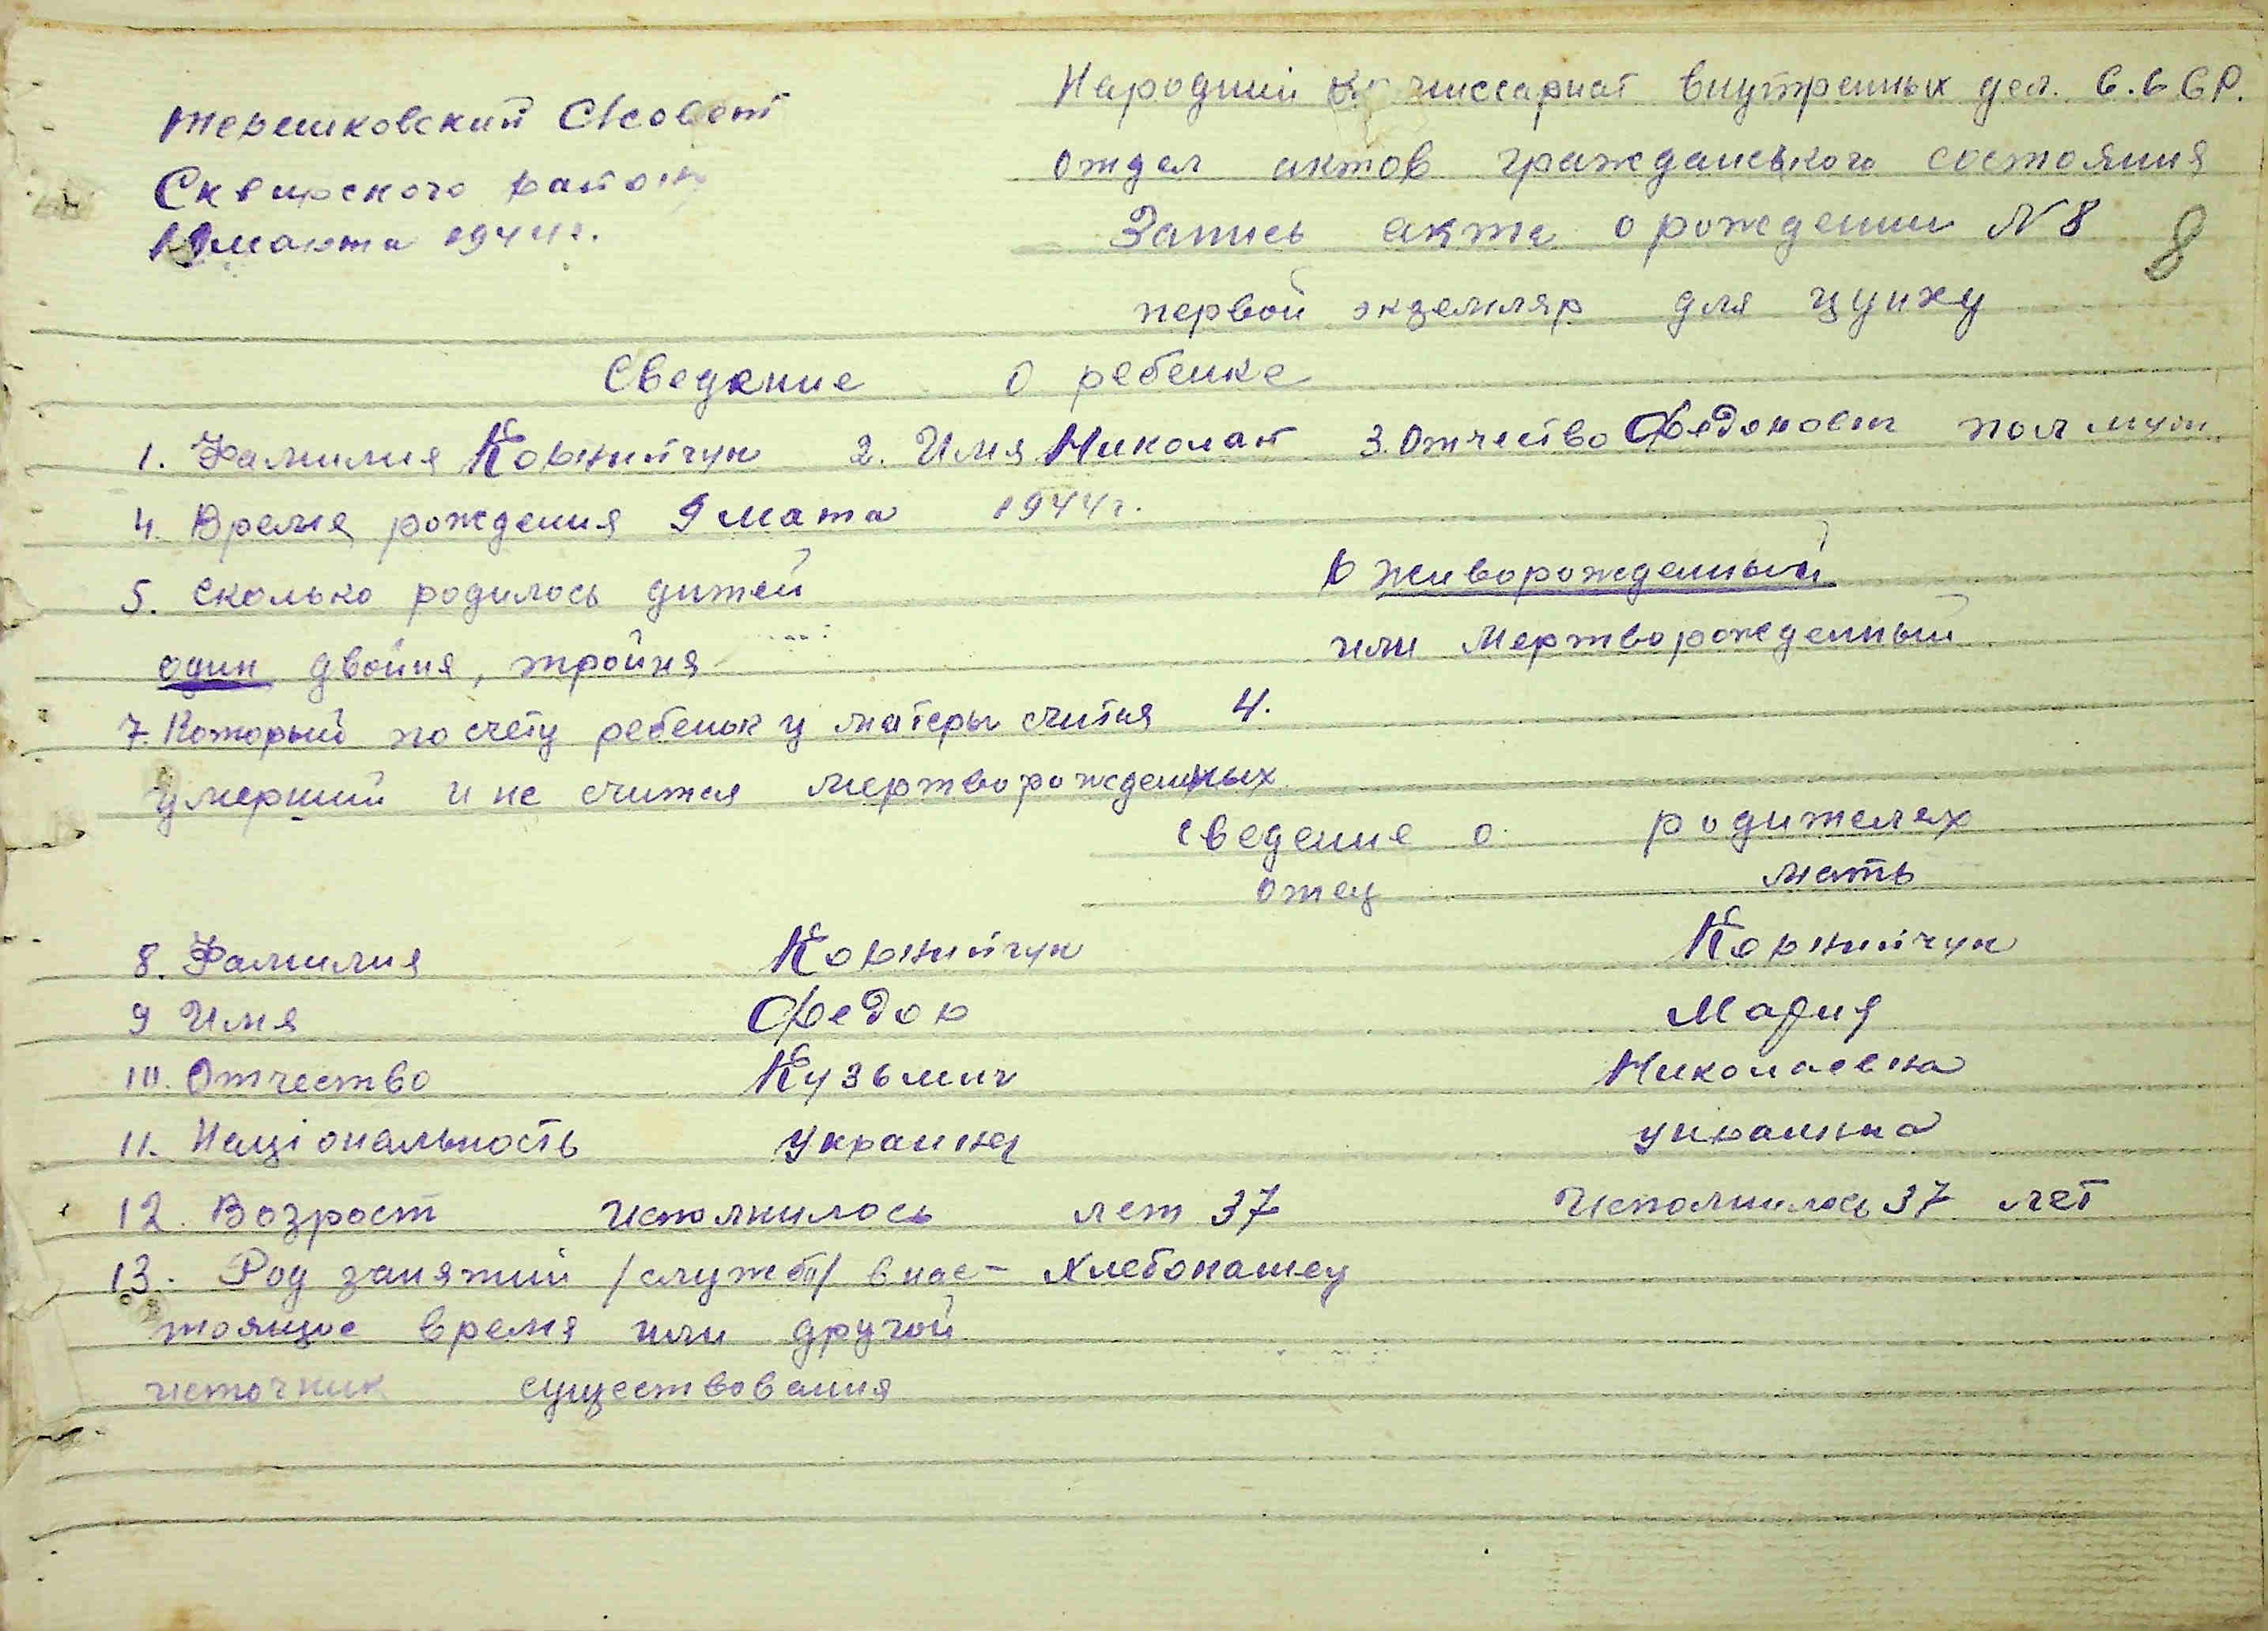 Терешковский С/совет
Сквирского района
19 марта 1944 г.
Народний Комиссариат внутренных дел. С.С.С.Р.
отдел актов гражданського состояния
Запись акта о рождении N 8
8
первой экземляр для цунху
Сведение о ребенке
1. Фамилия Корнийчук 2. Имя Николай 3. Отчество Федорович пол муж.
4. Время рождения 9 мата 1944 г.
5. Сколько родилось дитей
один двойня, тройня
6 живорожденный
или мертворожденный
7. Который по счету ребенок у матеры считая 4.
умерший и не считая мертворожденных
Сведение о родителях
отец мать
8. Фамилия Корнийчук Корнийчук
9 Имя Федор Мария
10. Отчество Кузьмич Николаевна
11. Національность Украинец украинка
12. Возрост исполнилось лет 37 исполнилось 37 лет
13. Род занятий /служб/ в нас- Хлебопашец
тоящое время или другой
источник существования